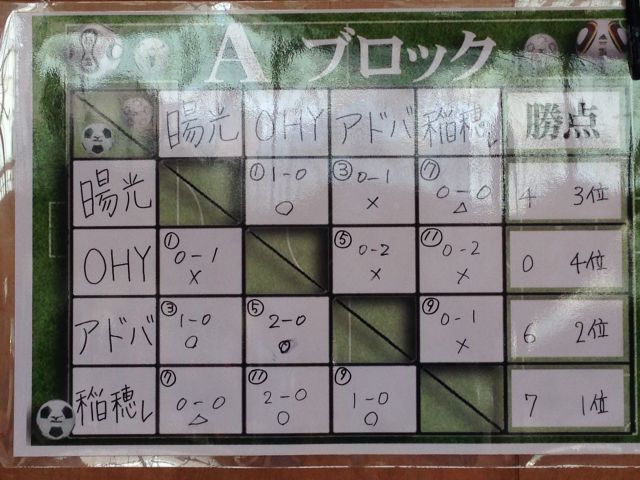 Aブロック
陽光 OHY アドバ 稲穂L 勝点
陽光 ① 1-0 ○ ③ 0-1 × ⑦ 0-0 △ 4 3位
OHY ① 0-1 × ⑤ 0-2 × ⑪ 0-2 × 0 4位
アドバ ③ 1-0 ○ ⑤ 2-0 ○ ⑨ 0-1 × 6 2位
稲穂L ⑦ 0-0 △ ⑪ 2-0 ○ ⑨ 1-0 ○ 7 1位